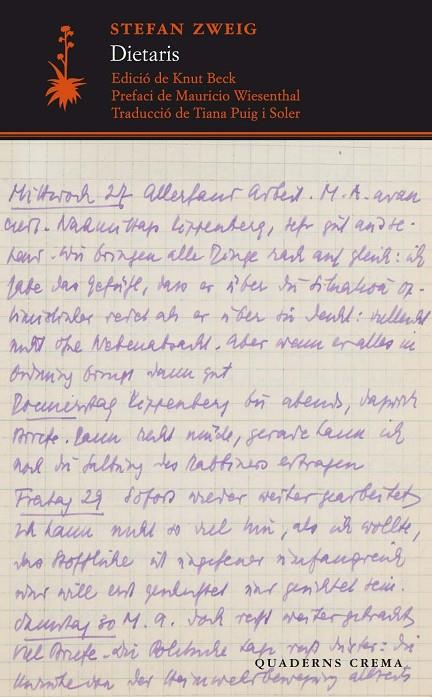 STEFAN ZWEIG
Dietaris
Edició de Knut Beck
Prefaci de Mauricio Wiesenthal
Traducció de Tiana Puig i Soler
Mittwoch 27 Allerhand Arbeit. M. A. avan
ciert. Nachmittags Kippenberg, sehr gut
Wir bringen alle Dinge rasch auf gleich: ich
habe das Gefühl, dass er über die Situation op-
timistischer redet als er über sie denkt: vielleicht
nicht ohne Nebenabsicht. Aber wenn er alles in
Ordnung bringt dann gut
Donnerstag Kippenberg bis abends, dazwisch
Briefe. Dann recht müde, gerade kann ich
noch die des Rabbiners ertragen
Freitag 29 Sofort wieder weiter gearbeitet
ich kann nicht so viel tun, als ich wollte,
das Stoffliche ist ungeheuer umfangreich
und will erst und gesichtet sein.
Samstag 30 M. A. doch weiter gebracht
viel Briefe. Die Politische Lage düster: die
von der Heimwehrbewegung
QUADERNS CREMA